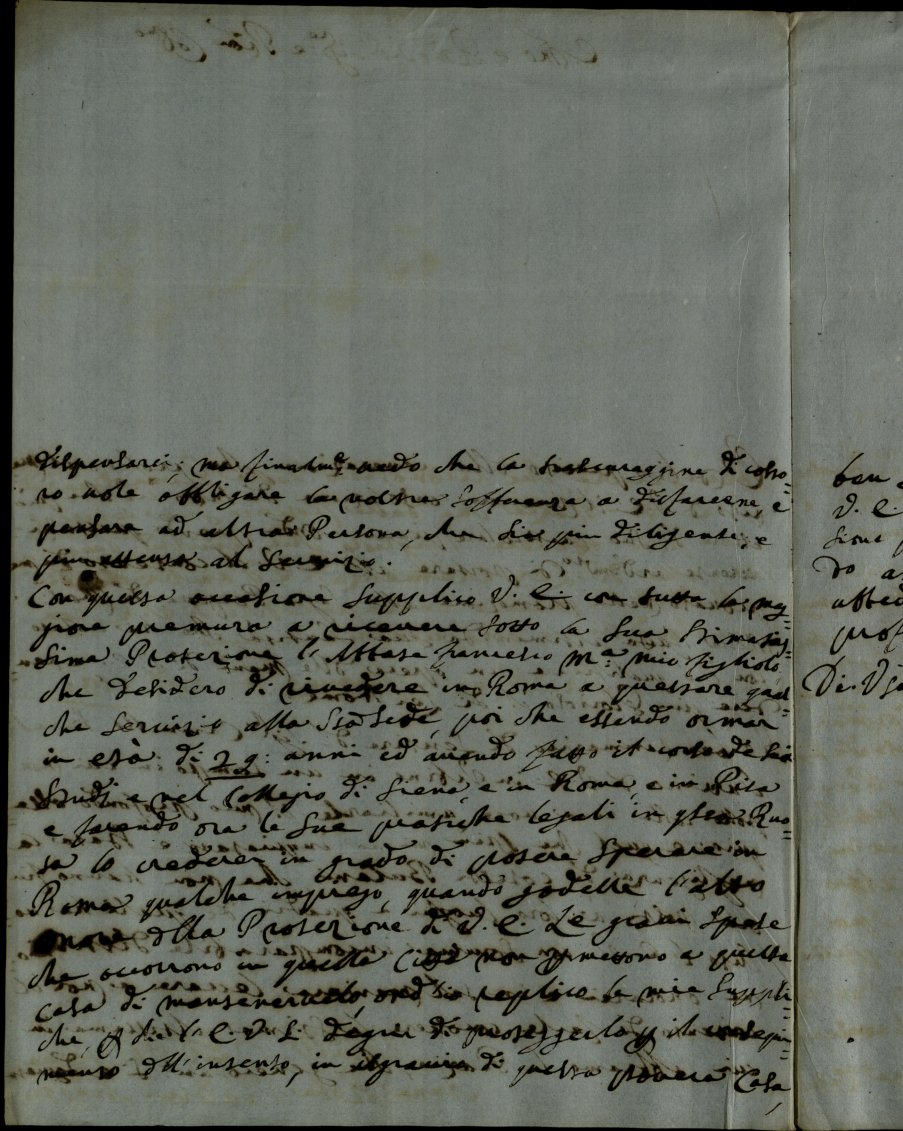 dispensarci; ma finalm.te vedo che la trascuraggine di costo=
ro vole obbligare la nostra sofferenza a disfarcene, e
pensare ad altra Persona, che sia piu diligente, e
piu attenta al Servizio.
Con questa occasione supplico V. E. con tutta la mag=
giore premura a ricevere sotto la sua stimatis=
sima Protezione l'Abbate Francesco M.a mio figliolo
che desidero di rivedere in Roma a prestare qual
che servizio alla S.ta Sede, poi che essendo ormai
in età di 29: anni ed avendo fatto il corso de suoi
Studj e nel Collegio di Siena, e in Roma, e in Pisa
e facendo ora le sue pratiche legali in q.sta Ruo=
ta lo crederei in grado di potere sperare in
Roma qualche impiego, quando godesse l'alto
onore dlla Protezione di V. E. Le gravi spese
che occorrono in quella Città non pmettono a questa
Casa di mantenercelo, replico le mie suppli=
che, che l'E. V. si degni di proteggerlo p il consegui=
mento dll'intento, in di questa povera Casa,
ben
V. E.
sione
do
obbed
prof
Di V